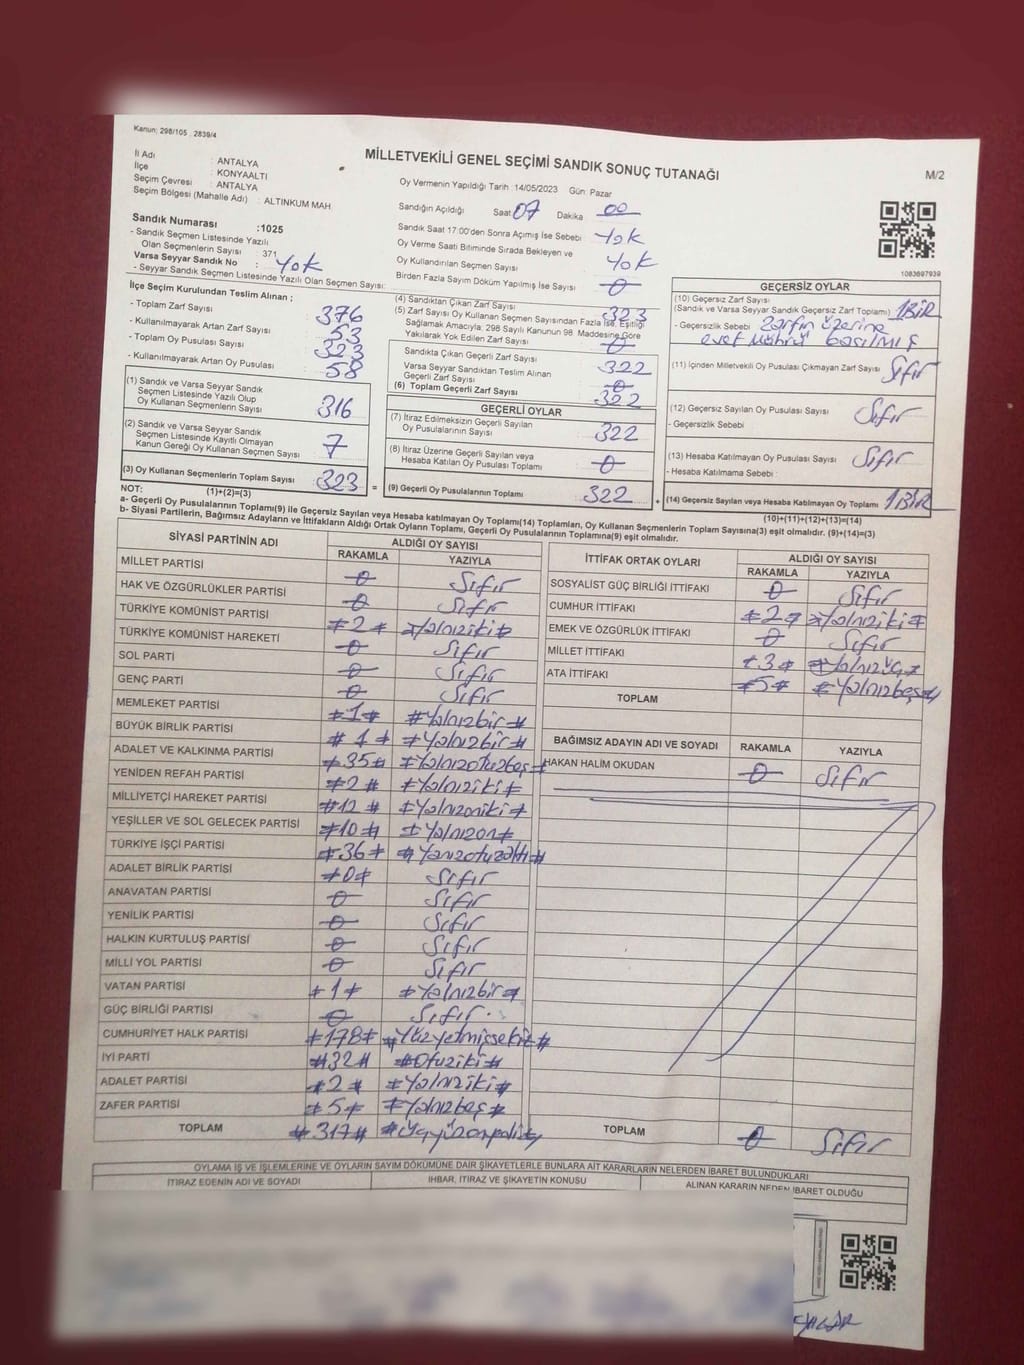 Kanun; 298/105 . 2839/4
MİLLETVEKİLİ GENEL SEÇİMİ SANDIK SONUÇ TUTANAĞI
M/2
İl Adı : ANTALYA
İlçe : KONYAALTI
Seçim Çevresi : ANTALYA
Seçim Bölgesi (Mahalle Adı) : ALTINKUM MAH.
Oy Vermenin Yapıldığı Tarih :14/05/2023 Gün: Pazar
Sandığın Açıldığı Saat 07 Dakika 00
Sandık Saat 17:00'den Sonra Açımış İse Sebebi Yok
Oy Verme Saati Bitiminde Sırada Bekleyen ve
Oy Kullandırılan Seçmen Sayısı Yok
Birden Fazla Sayım Döküm Yapılmış İse Sayısı 0
1083697939
Sandık Numarası :1025
- Sandık Seçmen Listesinde Yazılı
Olan Seçmenlerin Sayısı : 371
Varsa Seyyar Sandık No : Yok
- Seyyar Sandık Seçmen Listesinde Yazılı Olan Seçmen Sayısı:
İlçe Seçim Kurulundan Teslim Alınan ;
- Toplam Zarf Sayısı 376
- Kullanılmayarak Artan Zarf Sayısı 53
- Toplam Oy Pusulası Sayısı 323
- Kullanılmayarak Artan Oy Pusulası 58
(1) Sandık ve Varsa Seyyar Sandık
Seçmen Listesinde Yazılı Olup
Oy Kullanan Seçmenlerin Sayısı 316
(2) Sandık ve Varsa Seyyar Sandık
Seçmen Listesinde Kayıtlı Olmayan
Kanun Gereği Oy Kullanan Seçmen Sayısı 7
(3) Oy Kullanan Seçmenlerin Toplam Sayısı 323 =
(1)+(2)=(3)
(4) Sandıktan Çıkan Zarf Sayısı 323
(5) Zarf Sayısı Oy Kullanan Seçmen Sayısından Fazla İse, Eşitliği
Sağlamak Amacıyla; 298 Sayılı Kanunun 98. Maddesine Göre
Yakılarak Yok Edilen Zarf Sayısı 0
Sandıkta Çıkan Geçerli Zarf Sayısı 322
Varsa Seyyar Sandıktan Teslim Alınan
Geçerli Zarf Sayısı 0
(6) Toplam Geçerli Zarf Sayısı 322
GEÇERLİ OYLAR
(7) İtiraz Edilmeksizin Geçerli Sayılan
Oy Pusulalarının Sayısı 322
(8) İtiraz Üzerine Geçerli Sayılan veya
Hesaba Katılan Oy Pusulası Toplamı 0
(9) Geçerli Oy Pusulalarının Toplamı 322 +
GEÇERSİZ OYLAR
(10) Geçersiz Zarf Sayısı
(Sandık ve Varsa Seyyar Sandık Geçersiz Zarf Toplamı) 1BİR
- Geçersizlik Sebebi zarfın üzerine
evet mührü basılmış
(11) İçinden Milletvekili Oy Pusulası Çıkmayan Zarf Sayısı Sıfır
(12) Geçersiz Sayılan Oy Pusulası Sayısı Sıfır
- Geçersizlik Sebebi
(13) Hesaba Katılmayan Oy Pusulası Sayısı Sıfır
- Hesaba Katılmama Sebebi
(14) Geçersiz Sayılan veya Hesaba Katılmayan Oy Toplamı 1BİR
(10)+(11)+(12)+(13)=(14)
NOT:
a- Geçerli Oy Pusulalarının Toplamı(9) ile Geçersiz Sayılan veya Hesaba katılmayan Oy Toplamı(14) Toplamları, Oy Kullanan Seçmenlerin Toplam Sayısına(3) eşit olmalıdır. (9)+(14)=(3)
b- Siyasi Partilerin, Bağımsız Adayların ve İttifakların Aldığı Ortak Oyların Toplamı, Geçerli Oy Pusulalarının Toplamına(9) eşit olmalıdır.
SİYASİ PARTİNİN ADI ALDIĞI OY SAYISI
RAKAMLA YAZIYLA
MİLLET PARTİSİ 0 Sıfır
HAK VE ÖZGÜRLÜKLER PARTİSİ 0 Sıfır
TÜRKİYE KOMÜNİST PARTİSİ #2# #Yalnıziki#
TÜRKİYE KOMÜNİST HAREKETİ 0 Sıfır
SOL PARTİ 0 Sıfır
GENÇ PARTİ 0 Sıfır
MEMLEKET PARTİSİ #1# #Yalnızbir#
BÜYÜK BİRLİK PARTİSİ #1# #Yalnızbir#
ADALET VE KALKINMA PARTİSİ #35# #Yalnızotuzbeş#
YENİDEN REFAH PARTİSİ #2# #Yalnıziki#
MİLLİYETÇİ HAREKET PARTİSİ #12# #Yalnızoniki#
YEŞİLLER VE SOL GELECEK PARTİSİ #10# #Yalnızon#
TÜRKİYE İŞÇİ PARTİSİ #36# #Yanızotuzaltı#
ADALET BİRLİK PARTİSİ #0# Sıfır
ANAVATAN PARTİSİ 0 Sıfır
YENİLİK PARTİSİ 0 Sıfır
HALKIN KURTULUŞ PARTİSİ 0 Sıfır
MİLLİ YOL PARTİSİ 0 Sıfır
VATAN PARTİSİ #1# #Yalnızbir#
GÜÇ BİRLİĞİ PARTİSİ 0 Sıfır.
CUMHURİYET HALK PARTİSİ #178# #Yüzyetmişsekiz#
İYİ PARTİ #32# #Otuziki#
ADALET PARTİSİ #2# #Yalnıziki#
ZAFER PARTİSİ #5# #Yalnızbeş#
TOPLAM #317#
İTTİFAK ORTAK OYLARI ALDIĞI OY SAYISI
RAKAMLA YAZIYLA
SOSYALİST GÜÇ BİRLİĞİ İTTİFAKI 0 Sıfır
CUMHUR İTTİFAKI #2# #Yalnıziki#
EMEK VE ÖZGÜRLÜK İTTİFAKI 0 Sıfır
MİLLET İTTİFAKI #3# #Yalnızüç#
ATA İTTİFAKI #5# #Yalnızbeş#
TOPLAM
BAĞIMSIZ ADAYIN ADI VE SOYADI RAKAMLA YAZIYLA
HAKAN HALİM OKUDAN 0 Sıfır
TOPLAM 0 Sıfır
OYLAMA İŞ VE İŞLEMLERİNE VE OYLARIN SAYIM DÖKÜMÜNE DAİR ŞİKAYETLERLE BUNLARA AİT KARARLARIN NELERDEN İBARET BULUNDUKLARI
İTİRAZ EDENİN ADI VE SOYADI İHBAR, İTİRAZ VE ŞİKAYETİN KONUSU ALINAN KARARIN NEDEN İBARET OLDUĞU